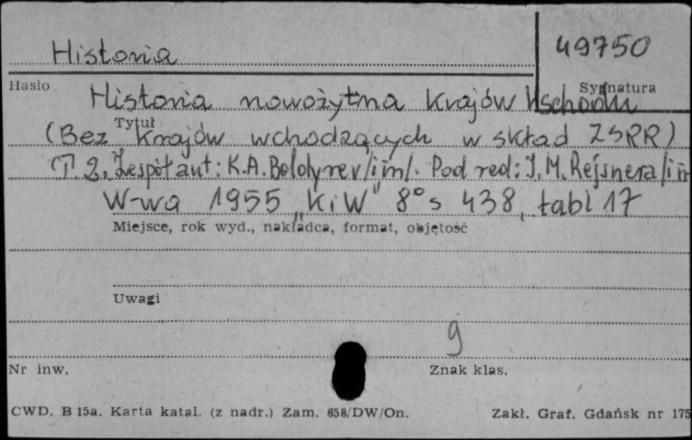 Historia
49750
Hasło
Sygnatura
Historia nowożytna Krajów Wschodu
Tytuł
(Bez Krajów wchodzących w skład ZSRR)
T. 2. Zespół aut: K.A. Boldyrev /i in/. Pod red: I. M. Rejsnera /i in
W-wa 1955 „KiW" 8° s 438, tabl 17
Miejsce, rok wyd., nakładca, format, objętość
Uwagi
9
Nr inw.
Znak klas.
CWD. B 15a. Karta katal. (z nadr.) Zam. 658/DW/On.
Zakł. Graf. Gdańsk nr 175